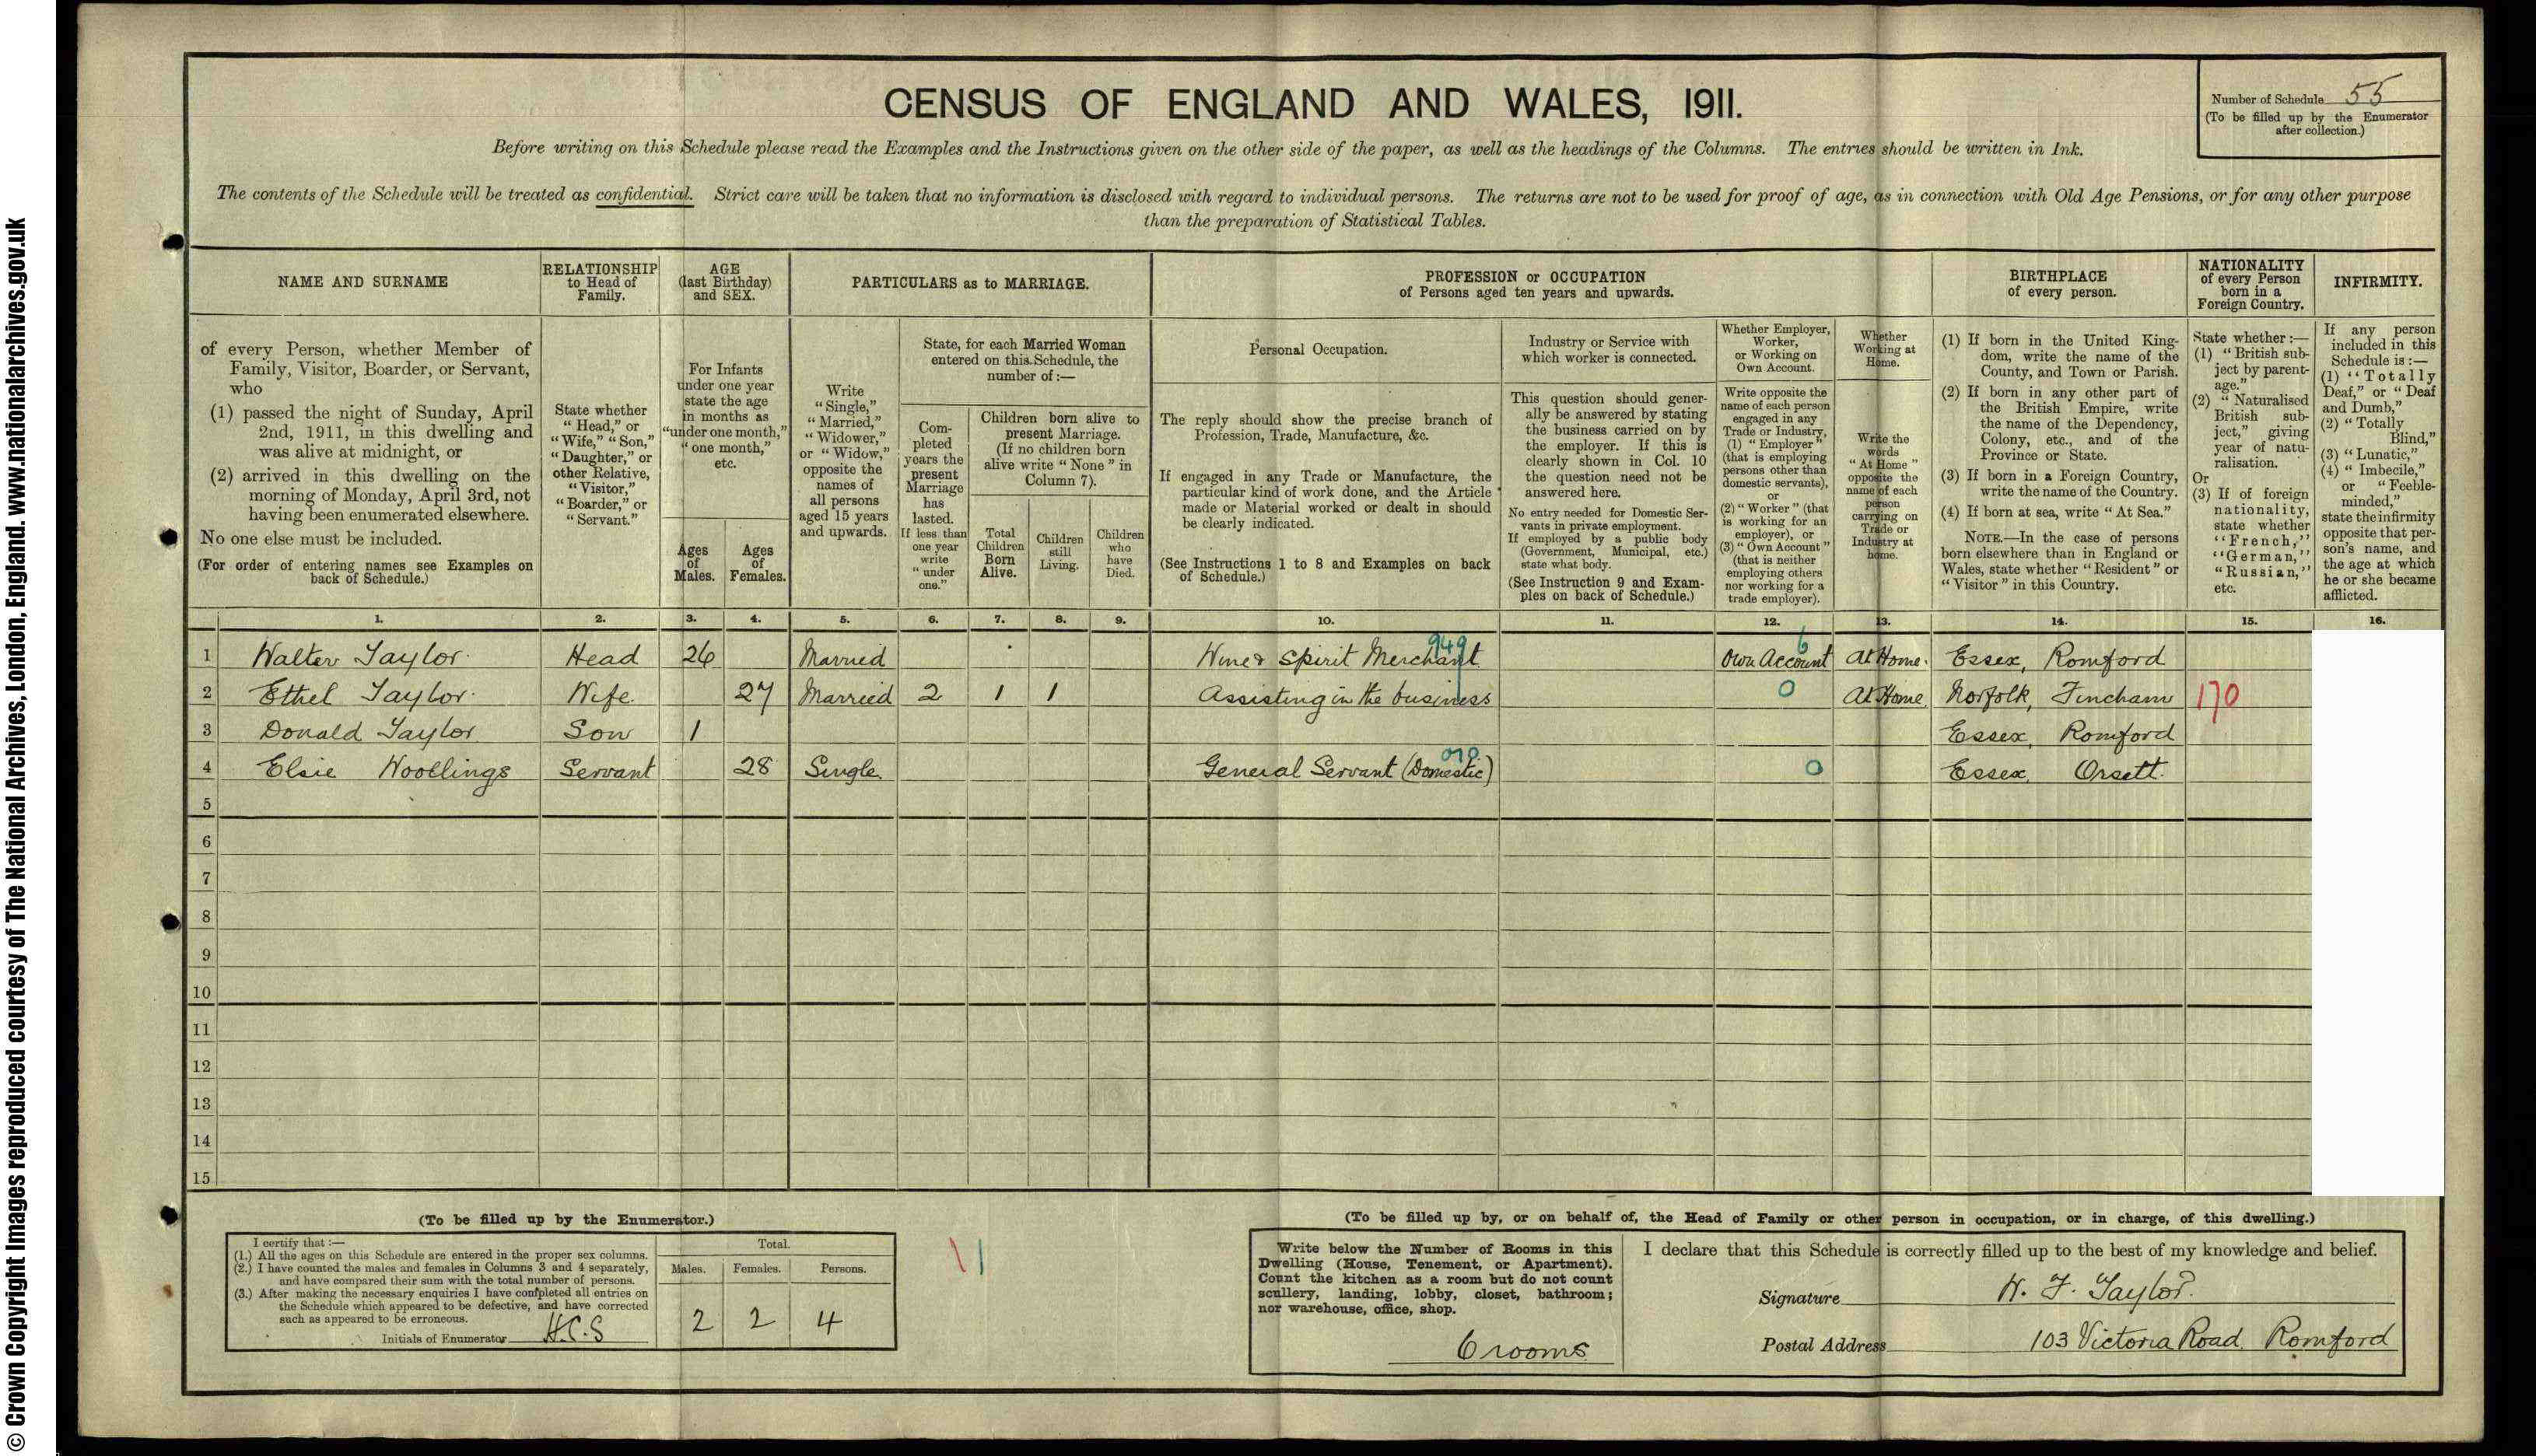 CENSUS OF ENGLAND AND WALES, 1911.
Number of Schedule 55
(To be filled up by the Enumerator
after collection.)
Before writing on this Schedule please read the Examples and the Instructions given on the other side of the paper, as well as the headings of the Columns. The entries should be written in Ink.
The contents of the Schedule will be treated as confidential. Strict care will be taken that no information is disclosed with regard to individual persons. The returns are not to be used for proof of age, as in connection with Old Age Pensions, or for any other purpose
than the preparation of Statistical Tables.
NAME AND SURNAME
of every Person, whether Member of
Family, Visitor, Boarder, or Servant,
who
(1) passed the night of Sunday, April
2nd, 1911, in this dwelling and
was alive at midnight, or
(2) arrived in this dwelling on the
morning of Monday, April 3rd, not
having been enumerated elsewhere.
No one else must be included.
(For order of entering names see Examples on
back of Schedule.)
RELATIONSHIP
to Head of
Family.
State whether
"Head," or
"Wife," "Son,"
"Daughter," or
other Relative,
"Visitor,"
"Boarder," or
"Servant."
AGE
(last Birthday)
and SEX.
For Infants
under one year
state the age
in months as
"under one month,"
"one month,"
etc.
Ages
of
Males.
Ages
of
Females.
PARTICULARS as to MARRIAGE.
Write
"Single,"
"Married,"
"Widower,"
or "Widow,"
opposite the
names of
all persons
aged 15 years
and upwards.
State, for each Married Woman
entered on this Schedule, the
number of :—
Com-
pleted
years the
present
Marriage
has
lasted.
If less than
one year
write
"under
one."
Children born alive to
present Marriage.
(If no children born
alive write "None" in
Column 7).
Total
Children
Born
Alive.
Children
still
Living.
Children
who
have
Died.
PROFESSION or OCCUPATION
of Persons aged ten years and upwards.
Personal Occupation.
The reply should show the precise branch of
Profession, Trade, Manufacture, &c.
If engaged in any Trade or Manufacture, the
particular kind of work done, and the Article
made or Material worked or dealt in should
be clearly indicated.
(See Instructions 1 to 8 and Examples on back
of Schedule.)
Industry or Service with
which worker is connected.
This question should gener-
ally be answered by stating
the business carried on by
the employer. If this is
clearly shown in Col. 10
the question need not be
answered here.
No entry needed for Domestic Ser-
vants in private employment.
If employed by a public body
(Government, Municipal, etc.)
state what body.
(See Instruction 9 and Exam-
ples on back of Schedule.)
Whether Employer,
Worker,
or Working on
Own Account.
Write opposite the
name of each person
engaged in any
Trade or Industry,
(1) "Employer"
(that is employing
persons other than
domestic servants),
or
(2) "Worker" (that
is working for an
employer), or
(3) "Own Account"
(that is neither
employing others
nor working for a
trade employer).
Whether
Working at
Home.
Write the
words
"At Home"
opposite the
name of each
person
carrying on
Trade or
Industry at
home.
BIRTHPLACE
of every person.
(1) If born in the United King-
dom, write the name of the
County, and Town or Parish.
(2) If born in any other part of
the British Empire, write
the name of the Dependency,
Colony, etc., and of the
Province or State.
(3) If born in a Foreign Country,
write the name of the Country.
(4) If born at sea, write "At Sea."
NOTE.—In the case of persons
born elsewhere than in England or
Wales, state whether "Resident" or
"Visitor" in this Country.
NATIONALITY
of every Person
born in a
Foreign Country.
State whether :—
(1) "British sub-
ject by parent-
age."
(2) "Naturalised
British sub-
ject," giving
year of natu-
ralisation.
Or
(3) If of foreign
nationality,
state whether
"French,"
"German,"
"Russian,"
etc.
INFIRMITY.
If any person
included in this
Schedule is :—
(1) "Totally
Deaf," or "Deaf
and Dumb,"
(2) "Totally
Blind,"
(3) "Lunatic,"
(4) "Imbecile,"
or "Feeble-
minded,"
state the infirmity
opposite that per-
son's name, and
the age at which
he or she became
afflicted.
1. 2. 3. 4. 5. 6. 7. 8. 9. 10. 11. 12. 13. 14. 15. 16.
1 Walter Taylor Head 26 Married Wine & Spirit Merchant 949 Own Account 6 At Home. Essex, Romford
2 Ethel Taylor Wife 27 Married 2 1 1 Assisting in the business 0 At Home Norfolk, Fincham 170
3 Donald Taylor Son 1 Essex, Romford
4 Elsie Woollings Servant 28 Single General Servant (Domestic) 0 Essex, Orsett
5
6
7
8
9
10
11
12
13
14
15
(To be filled up by the Enumerator.)
I certify that :—
(1.) All the ages on this Schedule are entered in the proper sex columns.
(2.) I have counted the males and females in Columns 3 and 4 separately,
and have compared their sum with the total number of persons.
(3.) After making the necessary enquiries I have completed all entries on
the Schedule which appeared to be defective, and have corrected
such as appeared to be erroneous.
Initials of Enumerator H.C.S
Total.
Males. Females. Persons.
2 2 4
(To be filled up by, or on behalf of, the Head of Family or other person in occupation, or in charge, of this dwelling.)
Write below the Number of Rooms in this
Dwelling (House, Tenement, or Apartment).
Count the kitchen as a room but do not count
scullery, landing, lobby, closet, bathroom;
nor warehouse, office, shop.
6 rooms
I declare that this Schedule is correctly filled up to the best of my knowledge and belief.
Signature W. F. Taylor
Postal Address 103 Victoria Road Romford
© Crown Copyright Images reproduced courtesy of The National Archives, London, England. www.nationalarchives.gov.uk